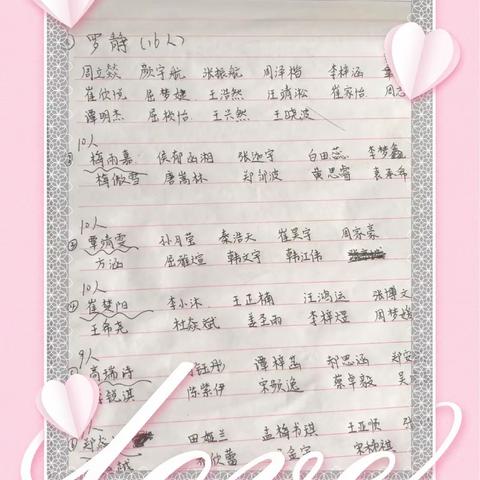 ① 罗静(16人)
周立燚 颜宇航 张振航 周泽楷 李梓涵
崔欣悦 屈梦婕 王浩然 汪靖淞 崔家怡
谭明杰 屈松怡 王兴然 王晓波
10人
② 梅雨嘉 侯郁函湘 张迦宇 白田蕊 李梦鑫
梅傲雪 唐嵩林 郑沛波 黄思睿
10人
③ 覃靖雯 孙月莹 秦浩天 崔昊宇 周家豪
方涵 屈雅煊 韩文宇 韩江伟
10人
④ 崔楚阳 李小沐 王正楠 汪鸿运 张博文
王希尧 杜焱斌 孟圣雨 李梓煜 周梦婕
9人
高瑞涛 钰彤 谭梓菡 郑思涵 郑
锐淇 陈紫伊 宋歌逸 蔡卓毅 吴
人
田娅兰 孟梅书琪 王亚顺 张
欣蕾 金宇 宋楠祺
love